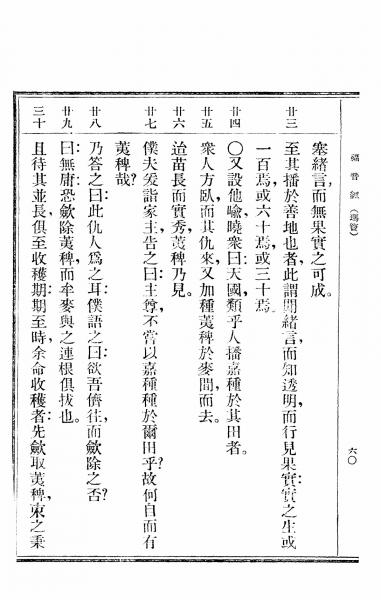 福音經（瑪竇）
六〇
塞緒言，而無果實之可成。
廿三 至其播於善地也者，此謂聞緒言，而知透明，而行見果實：實之生或
一百焉，或六十焉，或三十焉。
廿四 〇又設他喻，曉衆曰：天國，類乎人播嘉種於其田者。
廿五 衆人方臥，而其仇來，又加種荑稗於麥間而去。
廿六 迨苗長而實秀，荑稗乃見。
廿七 僕夫爰詣家主，告之曰：主尊，不嘗以嘉種種於爾田乎？故何自而有
荑稗哉？
廿八 乃答之曰：此仇人爲之耳。僕語之曰：欲吾儕往，而斂除之否？
廿九 曰：無庸；恐斂除荑稗，而牟麥與之連根俱拔也。
三十 且待其並長，俱至收穫期：期至時，余命收穫者：先斂取荑稗，束之秉